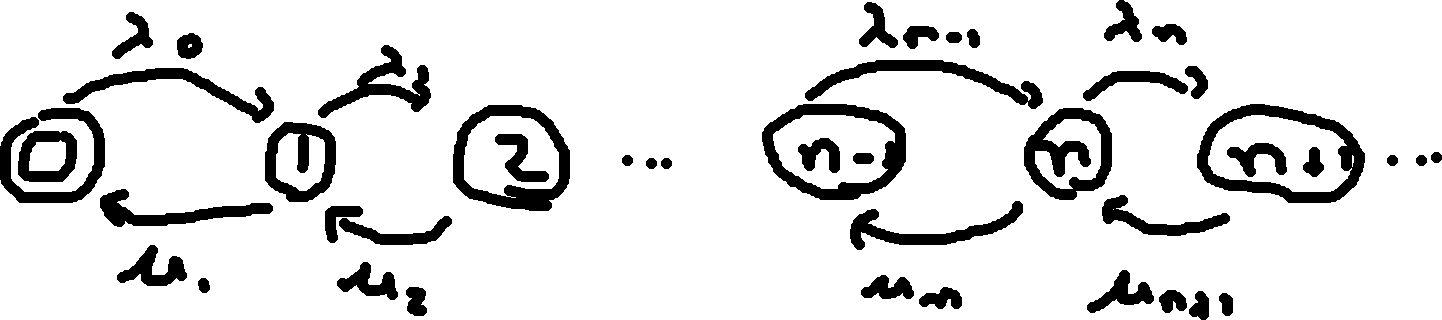 λ₀ λ₁ λₙ₋₁ λₙ
0 1 2 ... n-1 n n+1 ...
μ₁ μ₂ μₙ μₙ₊₁